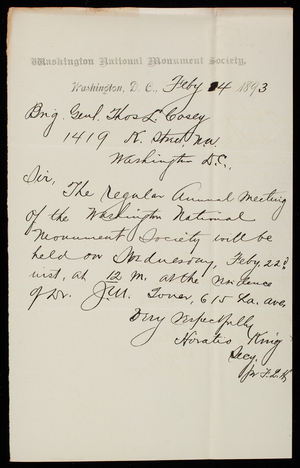 Washington National Monument Society,
Washington, D. C., Feby 14 1893
Brig. Genl. Thos L. Casey
1419 K. Street NW
Washington D.C.,
Sir,
The regular Annual Meeting
of the Washington National
Monument Society will be
held on Wednesday, Feby. 22d
inst, at 12 M. at the residence
of Dr. J. M. Toner, 615 La. ave,
Very respectfully
Horatio King
Secy.